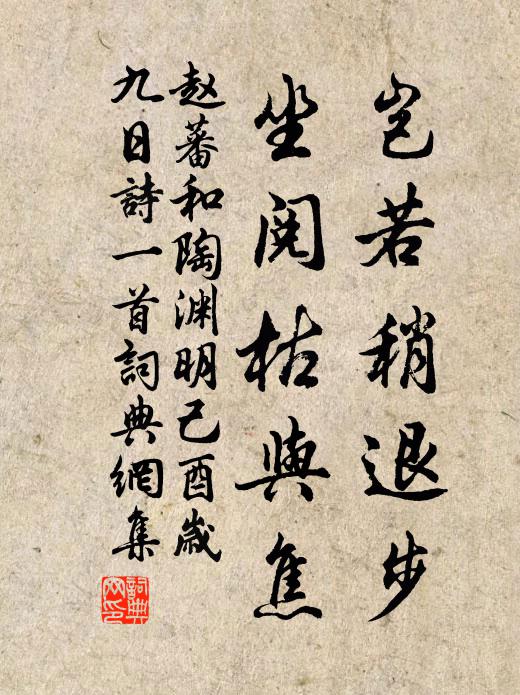 岂若稍退步
坐阅枯與焦
赵蕃和陶渊明己酉歲
九日詩一首詞典網集
詞典
网印